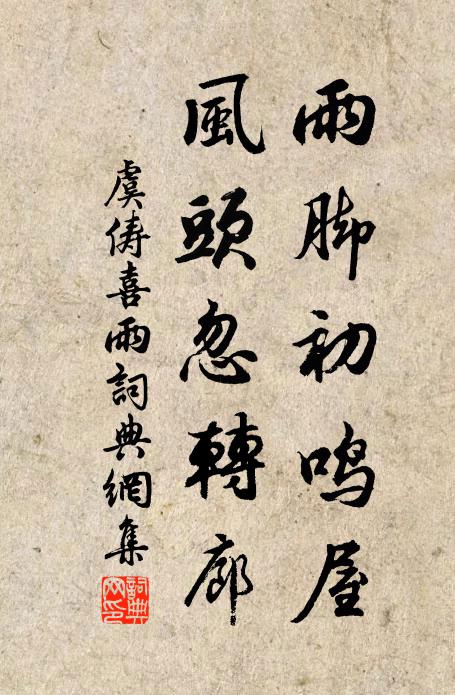 雨脚初鸣屋
風頭忽轉廊
虞俦喜雨詞典網集
詞典網印